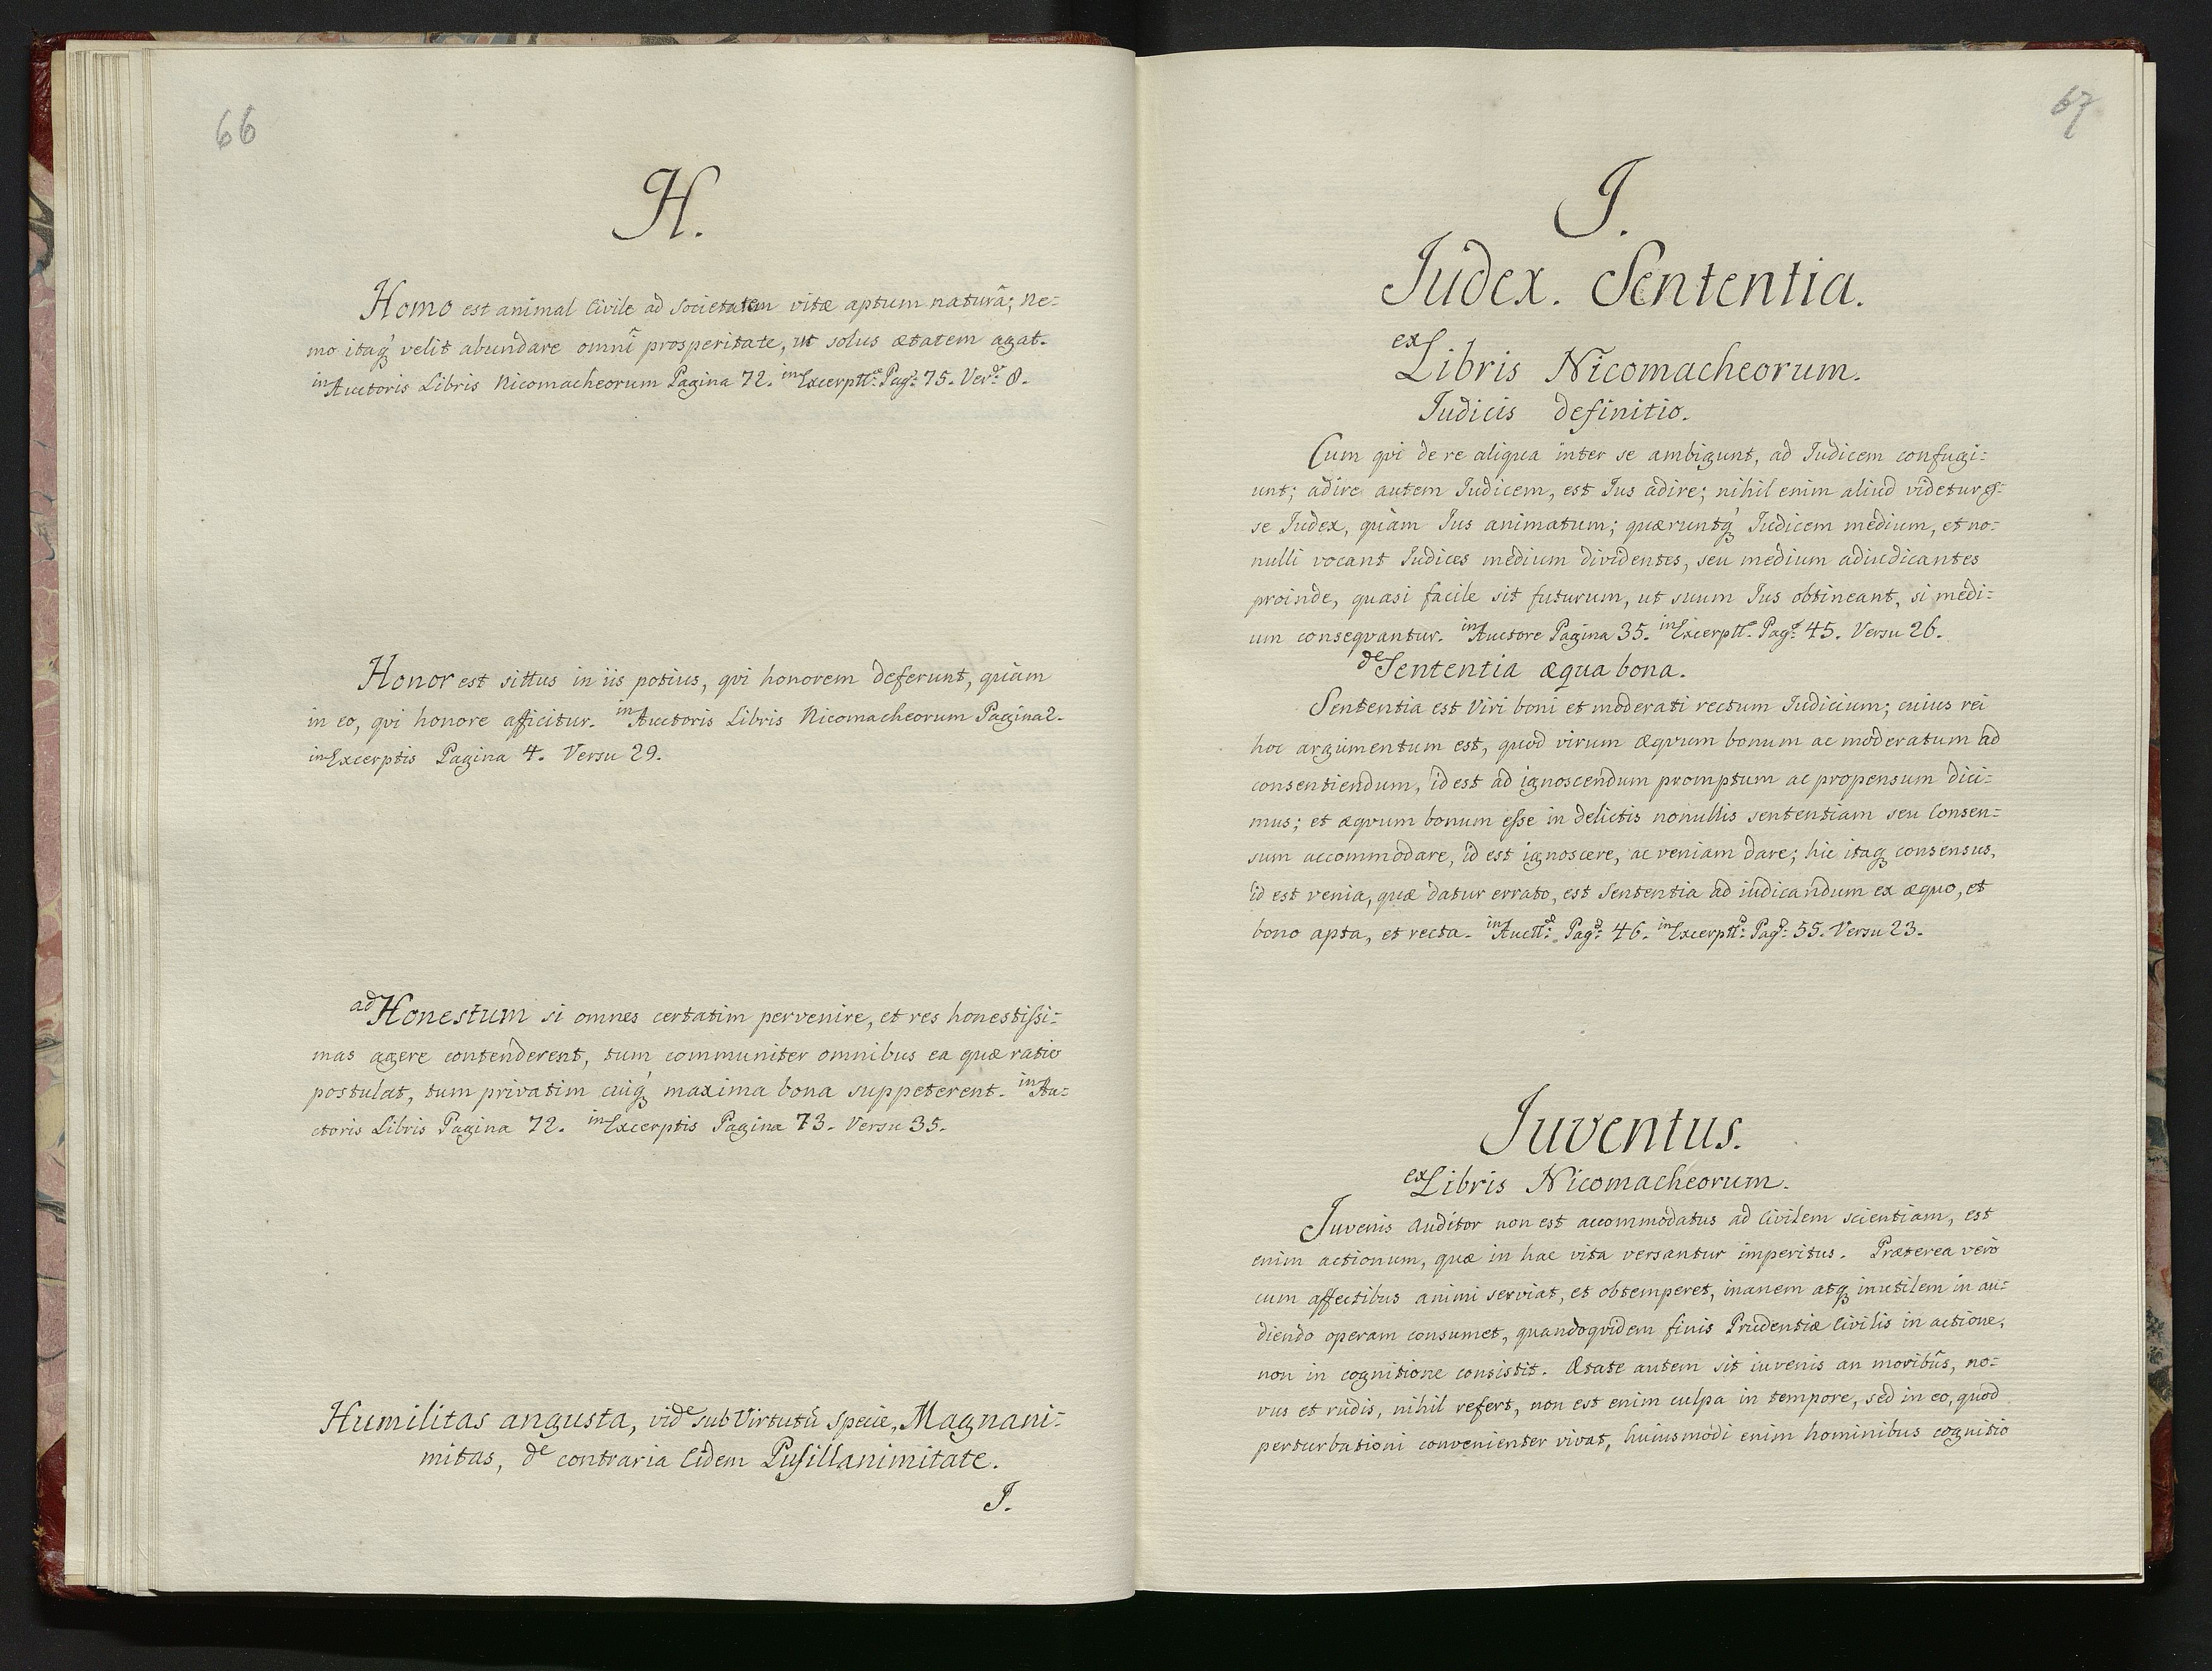 66
H.
Homo est animal Civile ad Societatem vitæ aptum naturâ; ne=
mo itaq́ꝫ velit abundare omni prosperitate, ut solus ætatem agat.
in Auctoris Libris Nicomacheorum Pagina 72. in Excerptt: Pag: 75. Vers: 8.
Honor est sittus in iis potius, qvi honorem deferunt, quàm
in eo, qvi honore afficitur. in Auctoris Libris Nicomacheorum Pagina 2.
in Excerptis Pagina 4. Versu 29.
ad Honestum si omnes certatim pervenire, et res honestissi=
mas agere contenderent, tum communiter omnibus ea quæ ratio
postulat, tum privatim cuiq́ꝫ maxima bona suppeterent. in Au=
ctoris Libris Pagina 72. in Excerptis Pagina 73. Versu 35.
Humilitas angusta, vide sub Virtutū specie, Magnani=
mitas, de contraria Eidem Pusillanimitate.
J.
67
J.
Judex. Sententia.
ex Libris Nicomacheorum.
Judicis definitio.
Cum qvi de re aliqua inter se ambigunt, ad Judicem confugi=
unt; adire autem Judicem, est Jus adire; nihil enim aliud videtur es=
se Judex, quàm Jus animatum; quæruntq́ꝫ Judicem medium, et no=
nulli vocant Judices medium dividentes, seu medium adiudicantes
proinde, quasi facile sit futurum, ut suum Jus obtineant, si medi=
um conseqvantur. in Auctore Pagina 35. in Excerptt: Pag: 45. Versu 26.
de Sententia æqua bona.
Sententia est Viri boni et moderati rectum Judicium; cuius rei
hoc argumentum est, quod virum æqvum bonum ac moderatum ad
consentiendum, id est ad ignoscendum promptum ac propensum dici=
mus; et æqvum bonum esse in delictis nonullis sententiam seu Consen=
sum accommodare, id est ignoscere, ac veniam dare; hic itaqꝫ consensus,
id est venia, quæ datur errato, est Sententia ad iudicandum ex æquo, et
bono apta, et recta. in Auctt: Pag: 46. in Excerptt: Pag: 55. Versu 23.
Juventus.
ex Libris Nicomacheorum.
Juvenis Auditor non est accommodatus ad Civilem scientiam, est
enim actionum, quæ in hac vita versantur imperitus. Præterea verò
cum affectibus animi serviat, et obtemperet, inanem atqꝫ inutilem in au=
diendo operam consumet, quandoqvidem finis Prudentiæ Civilis in actione,
non in cognitione consistit. Ætate autem sit iuvenis an moribus, no=
vus et rudis, nihil refert, non est enim culpa in tempore, sed in eo, quod
perturbationi convenienter vivat, huiusmodi enim hominibus cognitio